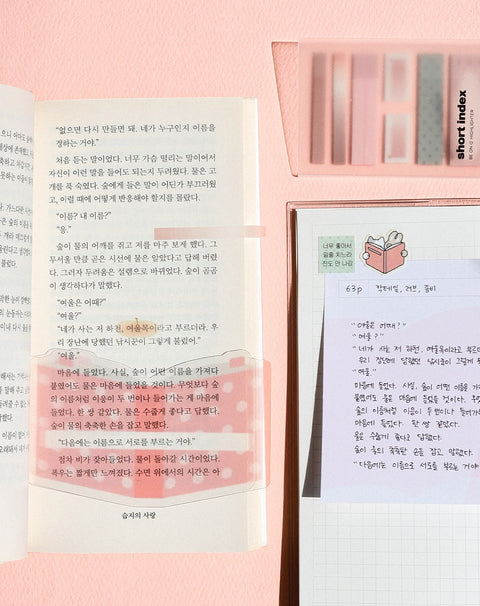 "없으면 다시 만들면 돼. 네가 누구인지 이름을
정하는 거야."
처음 듣는 말이었다. 너무 가슴 떨리는 말이어서
자신이 이런 말을 들어도 되는지 두려웠다. 물은 고
개를 푹 숙였다. 숲에게 들은 말이 어딘가 부끄러웠
고, 이럴 때에 어떻게 반응해야 할지를 몰랐다.
"이름? 내 이름?"
"응."
숲이 물의 어깨를 쥐고 저를 마주 보게 했다. 그
무서울 만큼 곧은 시선에 물은 알았다고 답해 버렸
다. 그러자 두려움은 설렘으로 바뀌었다. 숲이 곰곰
이 생각하다가 말했다.
"여울은 어때?"
"여울?"
"네가 사는 저 하천, 여울목이라고 부르더라. 우
리 장난에 당했던 낚시꾼이 그렇게 불렀어."
"여울."
마음에 들었다. 사실, 숲이 어떤 이름을 가져다
붙였어도 물은 마음에 들었을 것이다. 무엇보다 숲
의 이름처럼 이응이 두 번이나 들어가는 게 마음에
들었다. 한 쌍 같았다. 물은 수줍게 좋다고 답했다.
숲이 물의 축축한 손을 잡고 말했다.
"다음에는 이름으로 서로를 부르는 거야."
점차 비가 잦아들었다. 물이 돌아갈 시간이었다.
폭우는 짧게만 느껴졌다. 수면 위에서의 시간은 아
습지의 사랑
short index
BE ON D HIGHLIGHTER
너무 좋아서
밑줄 치느라
진도 안 나감
63p 칵테일, 러브, 좀비
"여울은 어때?"
"여울?"
"네가 사는 저 하천, 여울목이라고 부르더
우리 장난에 당했던 낚시꾼이 그렇게
"여울."
마음에 들었다. 사실, 숲이 어떤 이름을 가
붙였어도 물은 마음에 들었을 것이다.
숲의 이름처럼 이응이 두 번이나 들어
마음에 들었다. 한 쌍 같았다.
물은 수줍게 좋다고 답했다.
숲이 물의 축축한 손을 잡고 말했다.
"다음에는 이름으로 서로를 부르는 거야